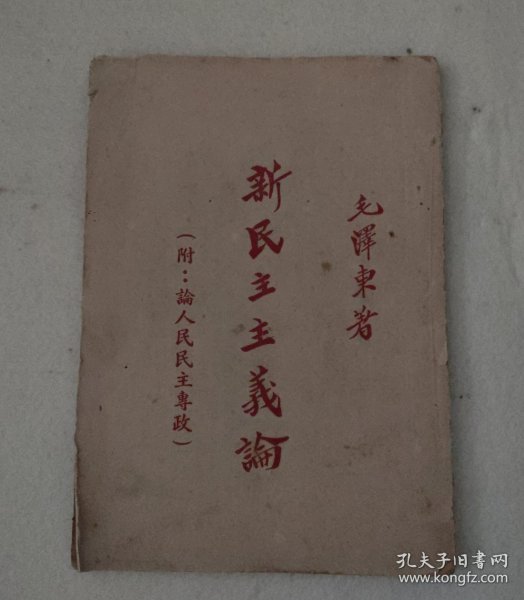 毛澤東著
新民主主義論
（附：論人民民主專政）
孔夫子旧书网
www.kongfz.com